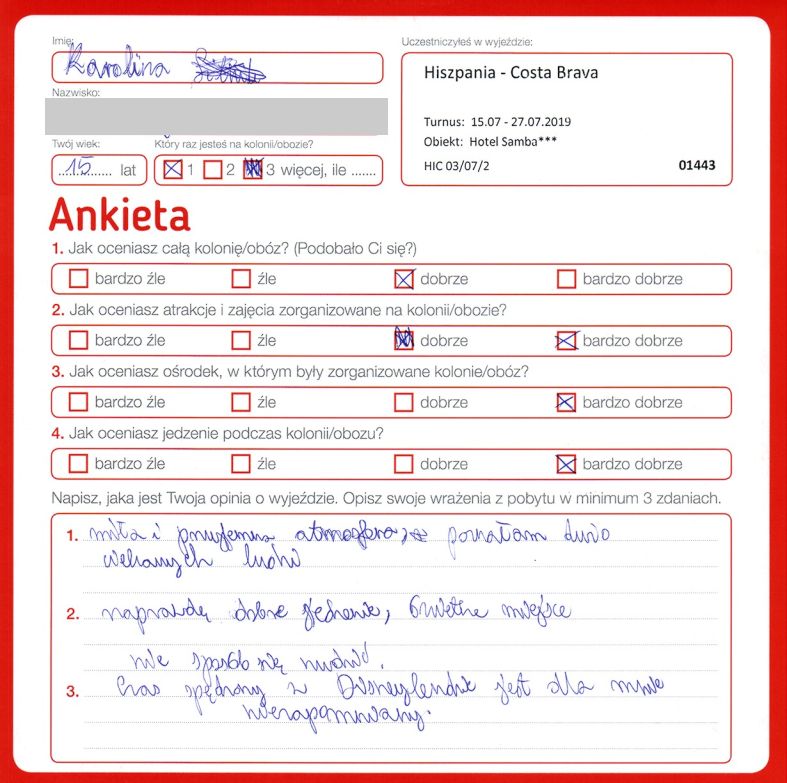 Imię:
Karolina
Nazwisko:
Twój wiek:
15 lat
Który raz jesteś na kolonii/obozie?
1 2 3 więcej, ile .......
Uczestniczyłeś w wyjeździe:
Hiszpania - Costa Brava
Turnus: 15.07 - 27.07.2019
Obiekt: Hotel Samba***
HIC 03/07/2 01443
Ankieta
1. Jak oceniasz całą kolonię/obóz? (Podobało Ci się?)
bardzo źle źle dobrze bardzo dobrze
2. Jak oceniasz atrakcje i zajęcia zorganizowane na kolonii/obozie?
bardzo źle źle dobrze bardzo dobrze
3. Jak oceniasz ośrodek, w którym były zorganizowane kolonie/obóz?
bardzo źle źle dobrze bardzo dobrze
4. Jak oceniasz jedzenie podczas kolonii/obozu?
bardzo źle źle dobrze bardzo dobrze
Napisz, jaka jest Twoja opinia o wyjeździe. Opisz swoje wrażenia z pobytu w minimum 3 zdaniach.
1. miła i przyjemna atmosfera, poznałam dużo
ludzi
2. naprawdę dobre jedzenie, świetne miejsce
nie sposób się nudzić.
3. Czas spędzony w Disneylendzie jest dla mnie
niezapomniany.